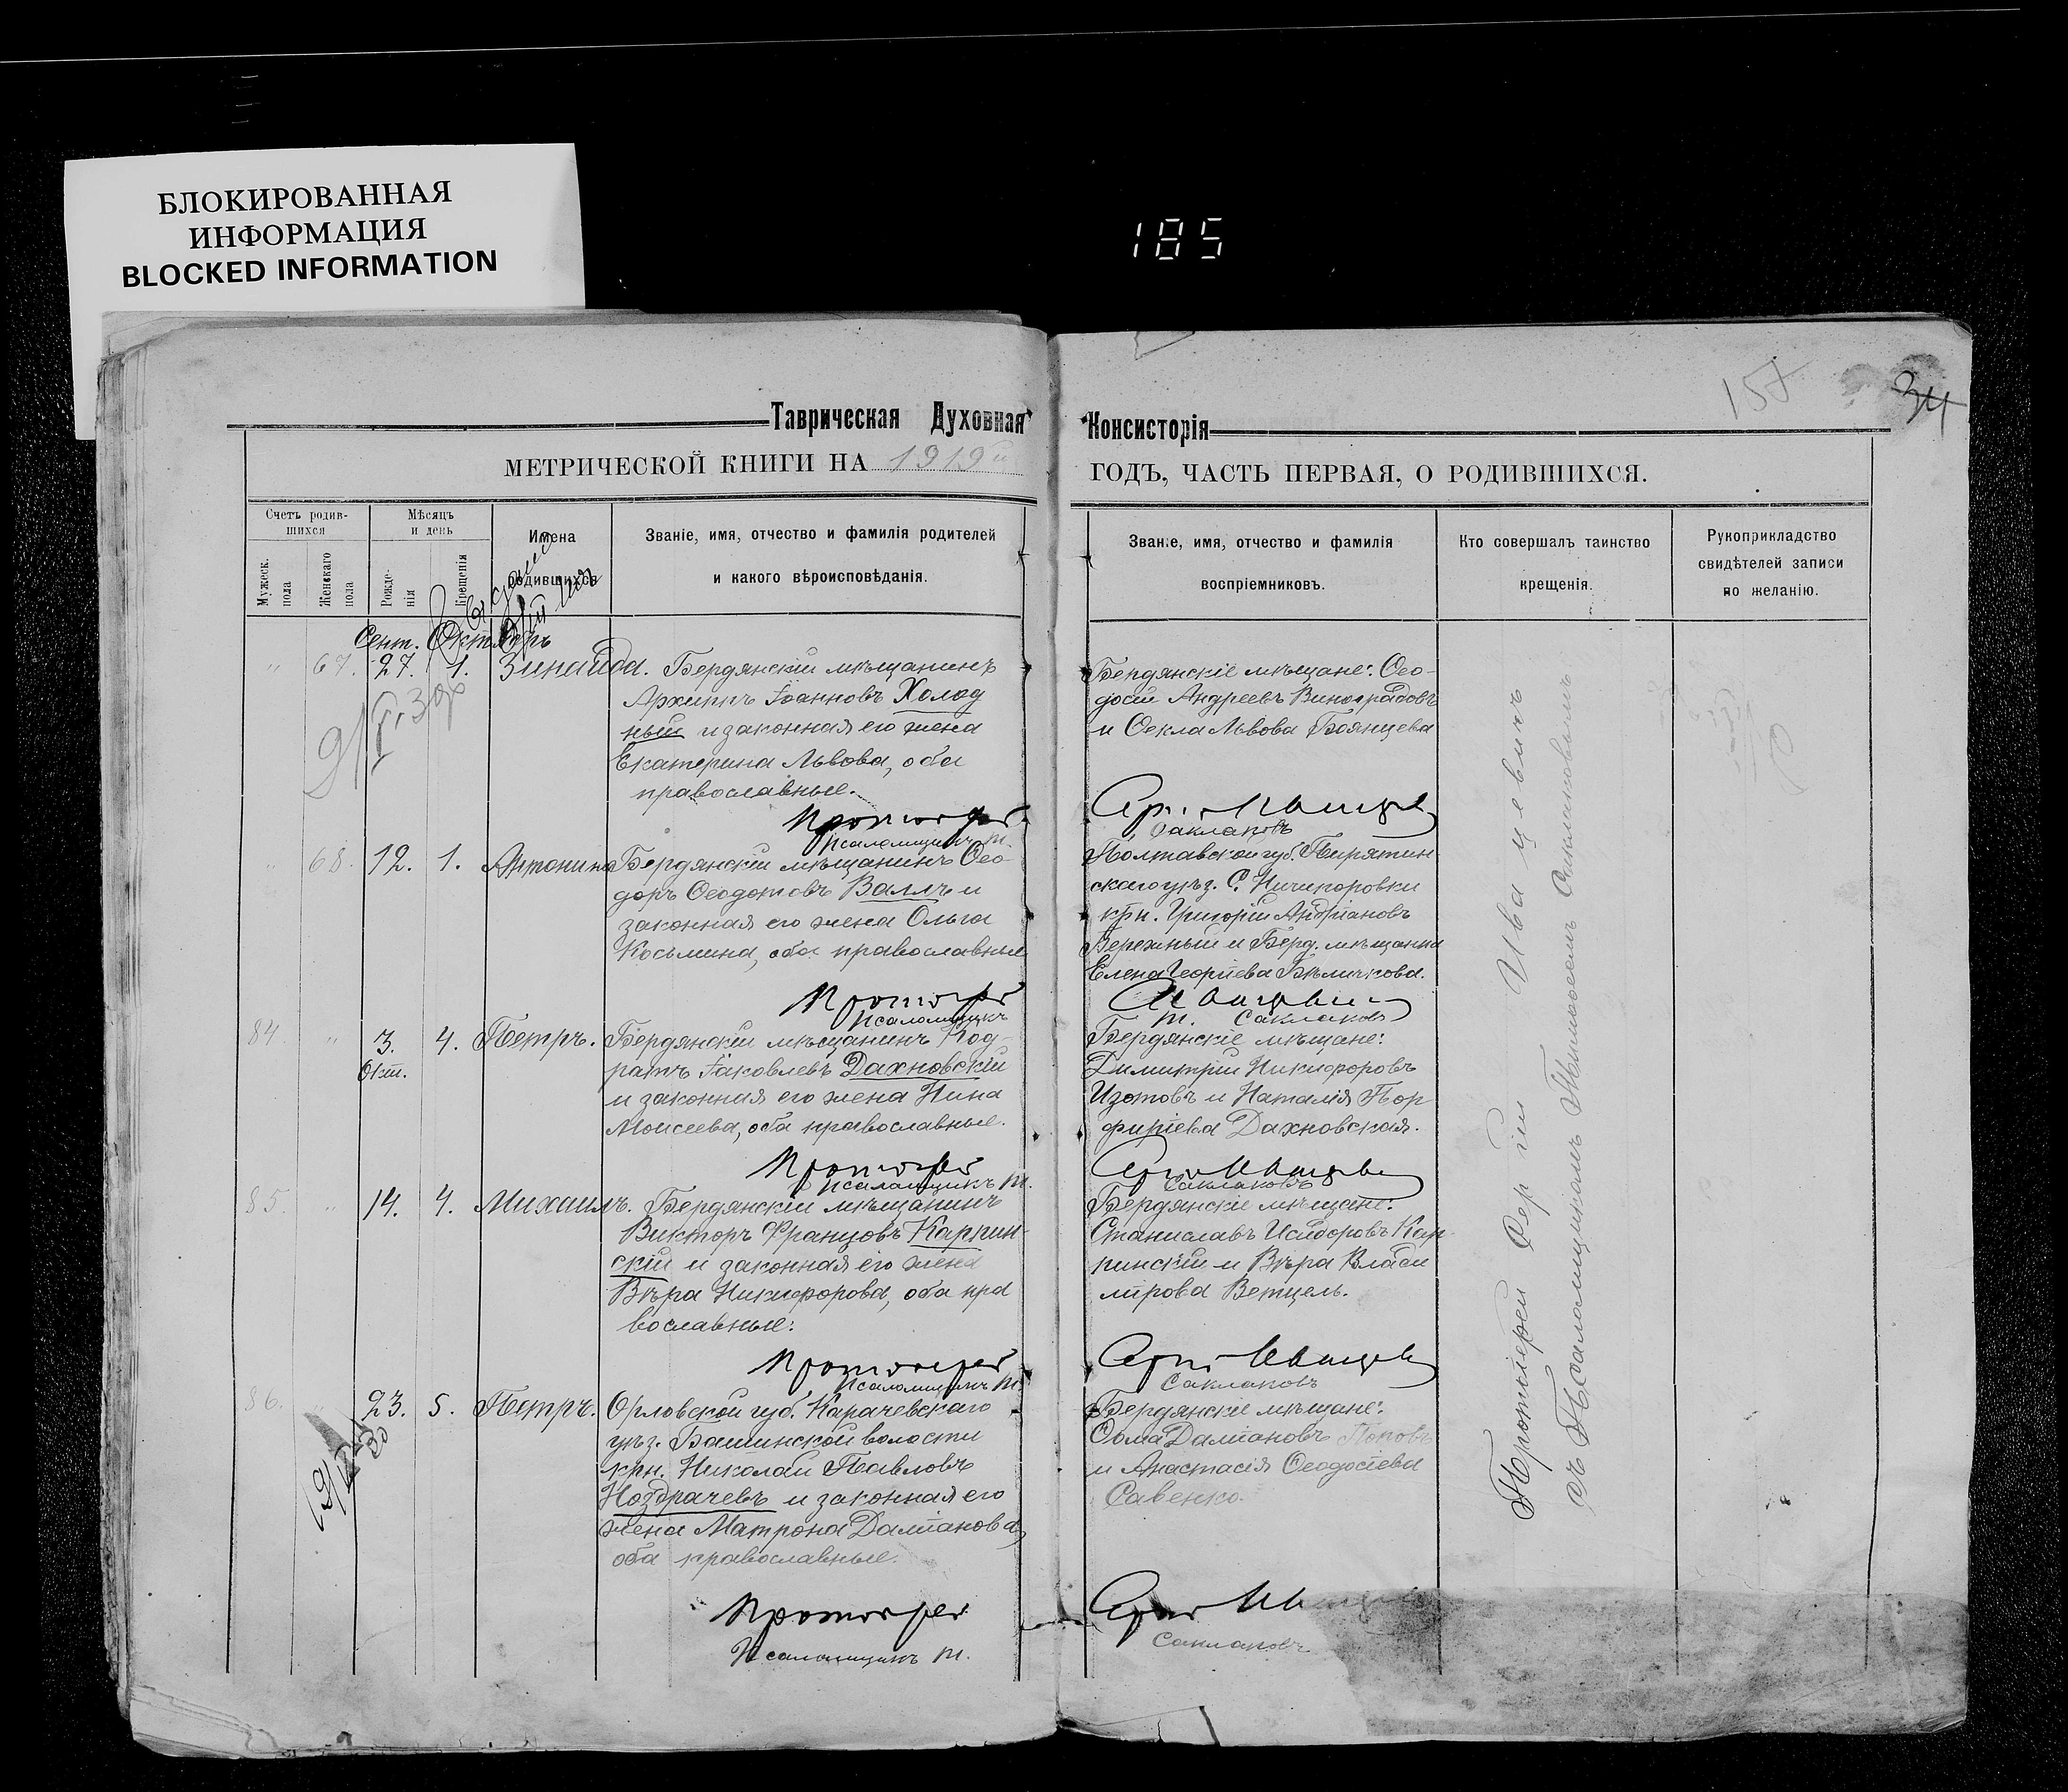 БЛОКИРОВАННАЯ
ИНФОРМАЦИЯ
BLOCKED INFORMATION
185
34
Таврическая Духовная
Консисторія
МЕТРИЧЕСКОЙ КНИГИ НА 1919й
ГОДЪ, ЧАСТЬ ПЕРВАЯ, О РОДИВШИХСЯ.
Счетъ родив-
шихся
Мужеск. пола
Женскаго пола
Мѣсяцъ
и день
Рожде-
нія
Крещенія
Имена
родившихся
Званіе, имя, отчество и фамилія родителей
и какого вѣроисповѣданія.
Званіе, имя, отчество и фамилія
воспріемниковъ.
Кто совершалъ таинство
крещенія.
Рукоприкладство
свидѣтелей записи
по желанію.
Сент. Октябрь
" 67. 27. 1. Зинаида. Бердянскій мѣщанинъ
Архиппъ Іоанновъ Холод
ный и законная его жена
Екатерина Львова, оба
православные.
Протоіерей
Псаломщикъ Т.
Бердянскіе мѣщане: Ѳео-
досій Андреевъ Виноградовъ
и Ѳекла Львова Боянцева
Сергій Иванцевичъ
Саклаковъ
" 68. 12. 1. Антонина Бердянскій мѣщанинъ Ѳео-
доръ ѲеодотовъВаллъ и
законная его жена Ольга
Косьмина, оба православные
Протоіерей
Псаломщикъ
Полтавской губ. Пирятин
скаго уѣз. С. Ничипоровки
крн. Григорій Андріановъ
Бережный и Берд. мѣщанка
Елена Георгіева Бѣличкова.
Т. Саклаковъ
84. " 3. 4. Петръ. Бердянскій мѣщанинъ Код-
Окт.
ратъ Іаковлевъ Дахновскій
и законная его жена Нина
Моисеева, оба православные.
Протоіерей
Псаломщикъ Т.
Бердянскіе мѣщане:
Димитрій Никифоровъ
Изотовъ и Наталія Пор
фиріева Дахновская.
Сергій
Саклаковъ
85. " 14. 4. Михаилъ. Бердянскій мѣщанинъ
Викторъ Францовъ Карпин-
скій и законная его жена
Вѣра Никифорова, оба пра
вославные:
Протоіерей
Псаломщикъ Т.
Бердянскіе мѣщане:
Станиславъ Исидоровъ Кар
пинскій и Вѣра Влади
мірова Ветцель.
Сергій
Саклаковъ
86. " 23. 5. Петръ. Орловской губ. Карачевскаго
уѣз. Бошинской волости
крн. Николай Павловъ
Ноздрачевъ и законная его
жена Матрона Даміанова,
оба православные.
Протоіерей
Псаломщикъ Т.
Бердянскіе мѣщане:
Ѳома Даміановъ Поповъ
и Анастасія Ѳеодосіева
Савенко.
Сергій
Саклаковъ
Протоіерей Сергій Иванцевичъ
съ Псаломщикомъ Тимоѳеемъ Саклаковымъ